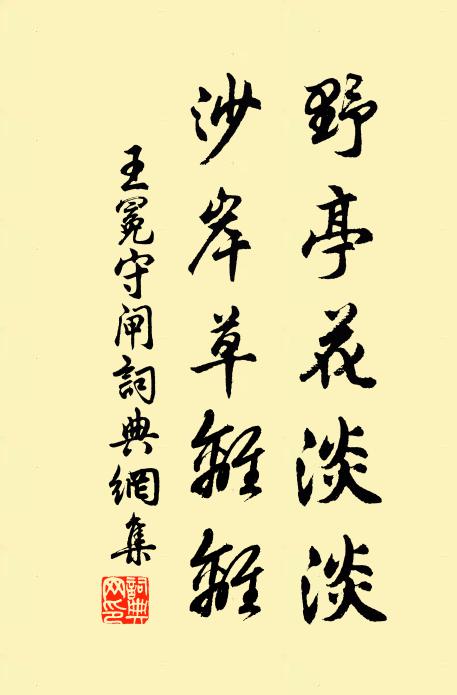 野亭花淡淡
沙岸草離離
王冕守閘詞典網集
詞典
网印